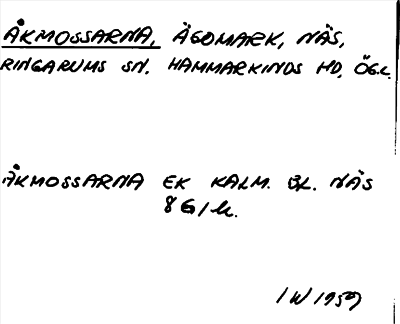 ÅKMOSSARNA, ÄGOMARK, NÄS,
RINGARUMS SN. HAMMARKINDS HD, ÖG.L.
ÅKMOSSARNA EK KALM. BL. NÄS
8G1k.
IW 1959